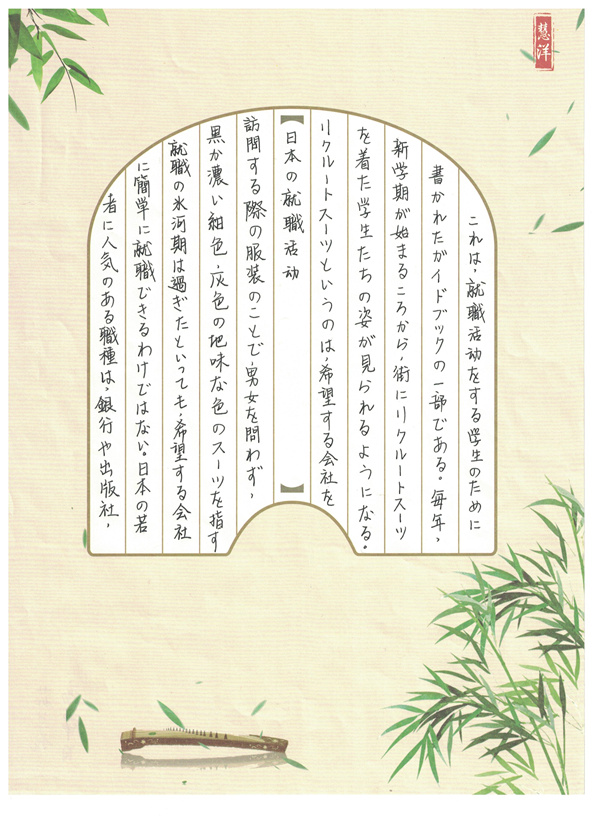 慧洋
これは、就職活動をする学生のために
書かれたガイドブックの一部である。毎年、
新学期が始まるころから、街にリクルートスーツ
を着た学生たちの姿が見られるようになる。
リクルートスーツというのは、希望する会社を
【日本の就職活動】
訪問する際の服装のことで、男女を問わず、
黒か濃い紺色、灰色の地味な色のスーツを指す
就職の氷河期は過ぎたといっても、希望する会社
に簡単に就職できるわけではない。日本の若
者に人気のある職種は、銀行や出版社、